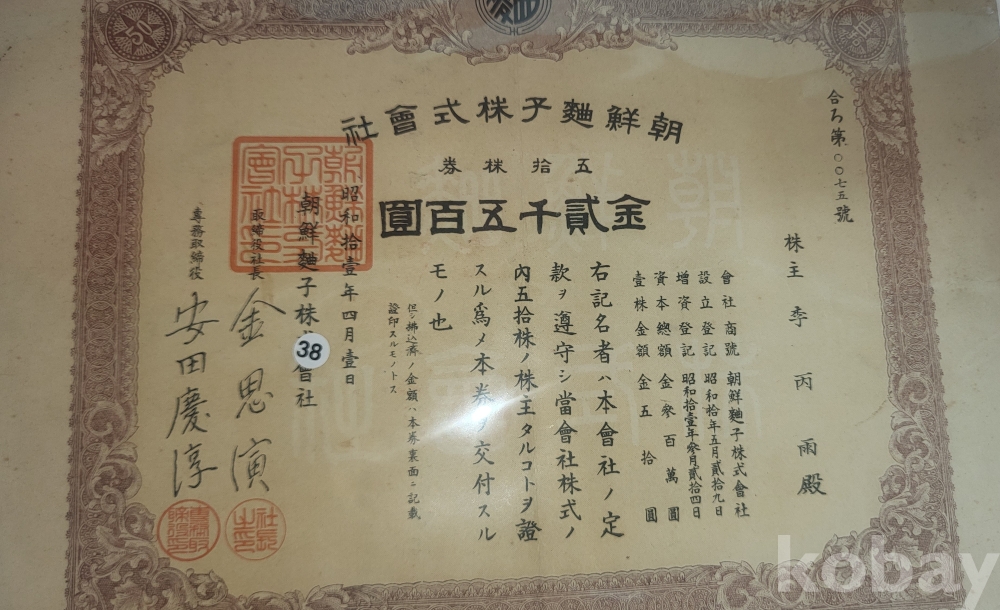 朝鮮麯子株式會社
五拾株券
金貳千五百圓
合ろ第〇〇七五號
株主 李丙雨殿
會社商號 朝鮮麯子株式會社
設立登記 昭和拾年五月貳拾九日
增資登記 昭和拾壹年參月貳拾四日
資本總額 金參百萬圓
壹株金額 金五拾圓
右記名者ハ本會社ノ定
款ヲ遵守シ當會社株式ノ
內五拾株ノ株主タルコトヲ證
スル爲メ本券ヲ交付スル
モノ也
但シ拂込濟ノ金額ハ本券裏面ニ記載
證印スルモノトス
昭和拾壹年四月壹日
朝鮮麯子株 會社
取締役社長 金思演
專務取締役 安田慶淳
朝鮮麯子株式會社印
38
50
kobay